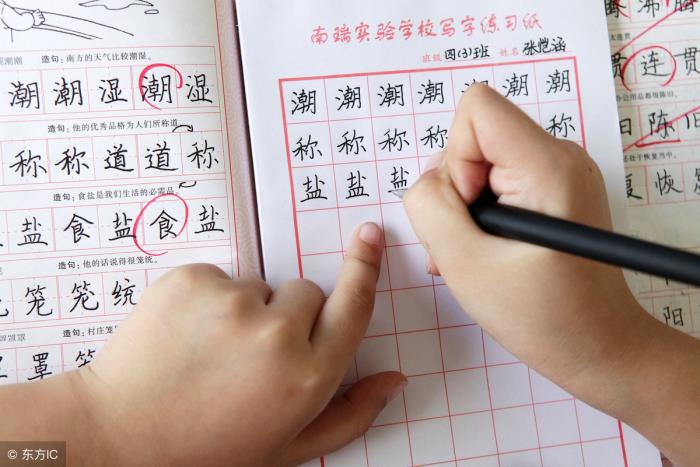 造句：南方的天气比较潮湿。
潮 潮 湿 潮 湿
造句：他的优秀品格为人们所称道。
称 称 道 道 称
造句：食盐是我们生活的必需品。
盐 食 盐 食 盐
造句：他的话说得很笼统。
笼 笼 统
造句：村庄笼
罩 罩
南瑞实验学校写字练习纸
班级 四(3)班 姓名 张恺涵
潮 潮 潮 潮 潮 潮 潮
称 称 称 称 称
盐 盐 盐
沸 腾
贯 连 贯
办公用品都很陈旧。
旧 陈 旧
还处于恢复当中。
复 恢 复
阳
© 东方IC